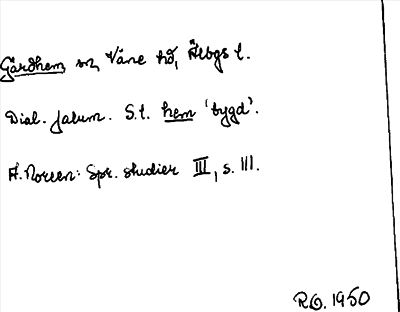 Gärdhem sn, Väne hd, Älvbgs l.
Dial. jalum. S.l. hem 'bygd'.
A. Noreen: Spr. studier III, s. 111.
R.O. 1950